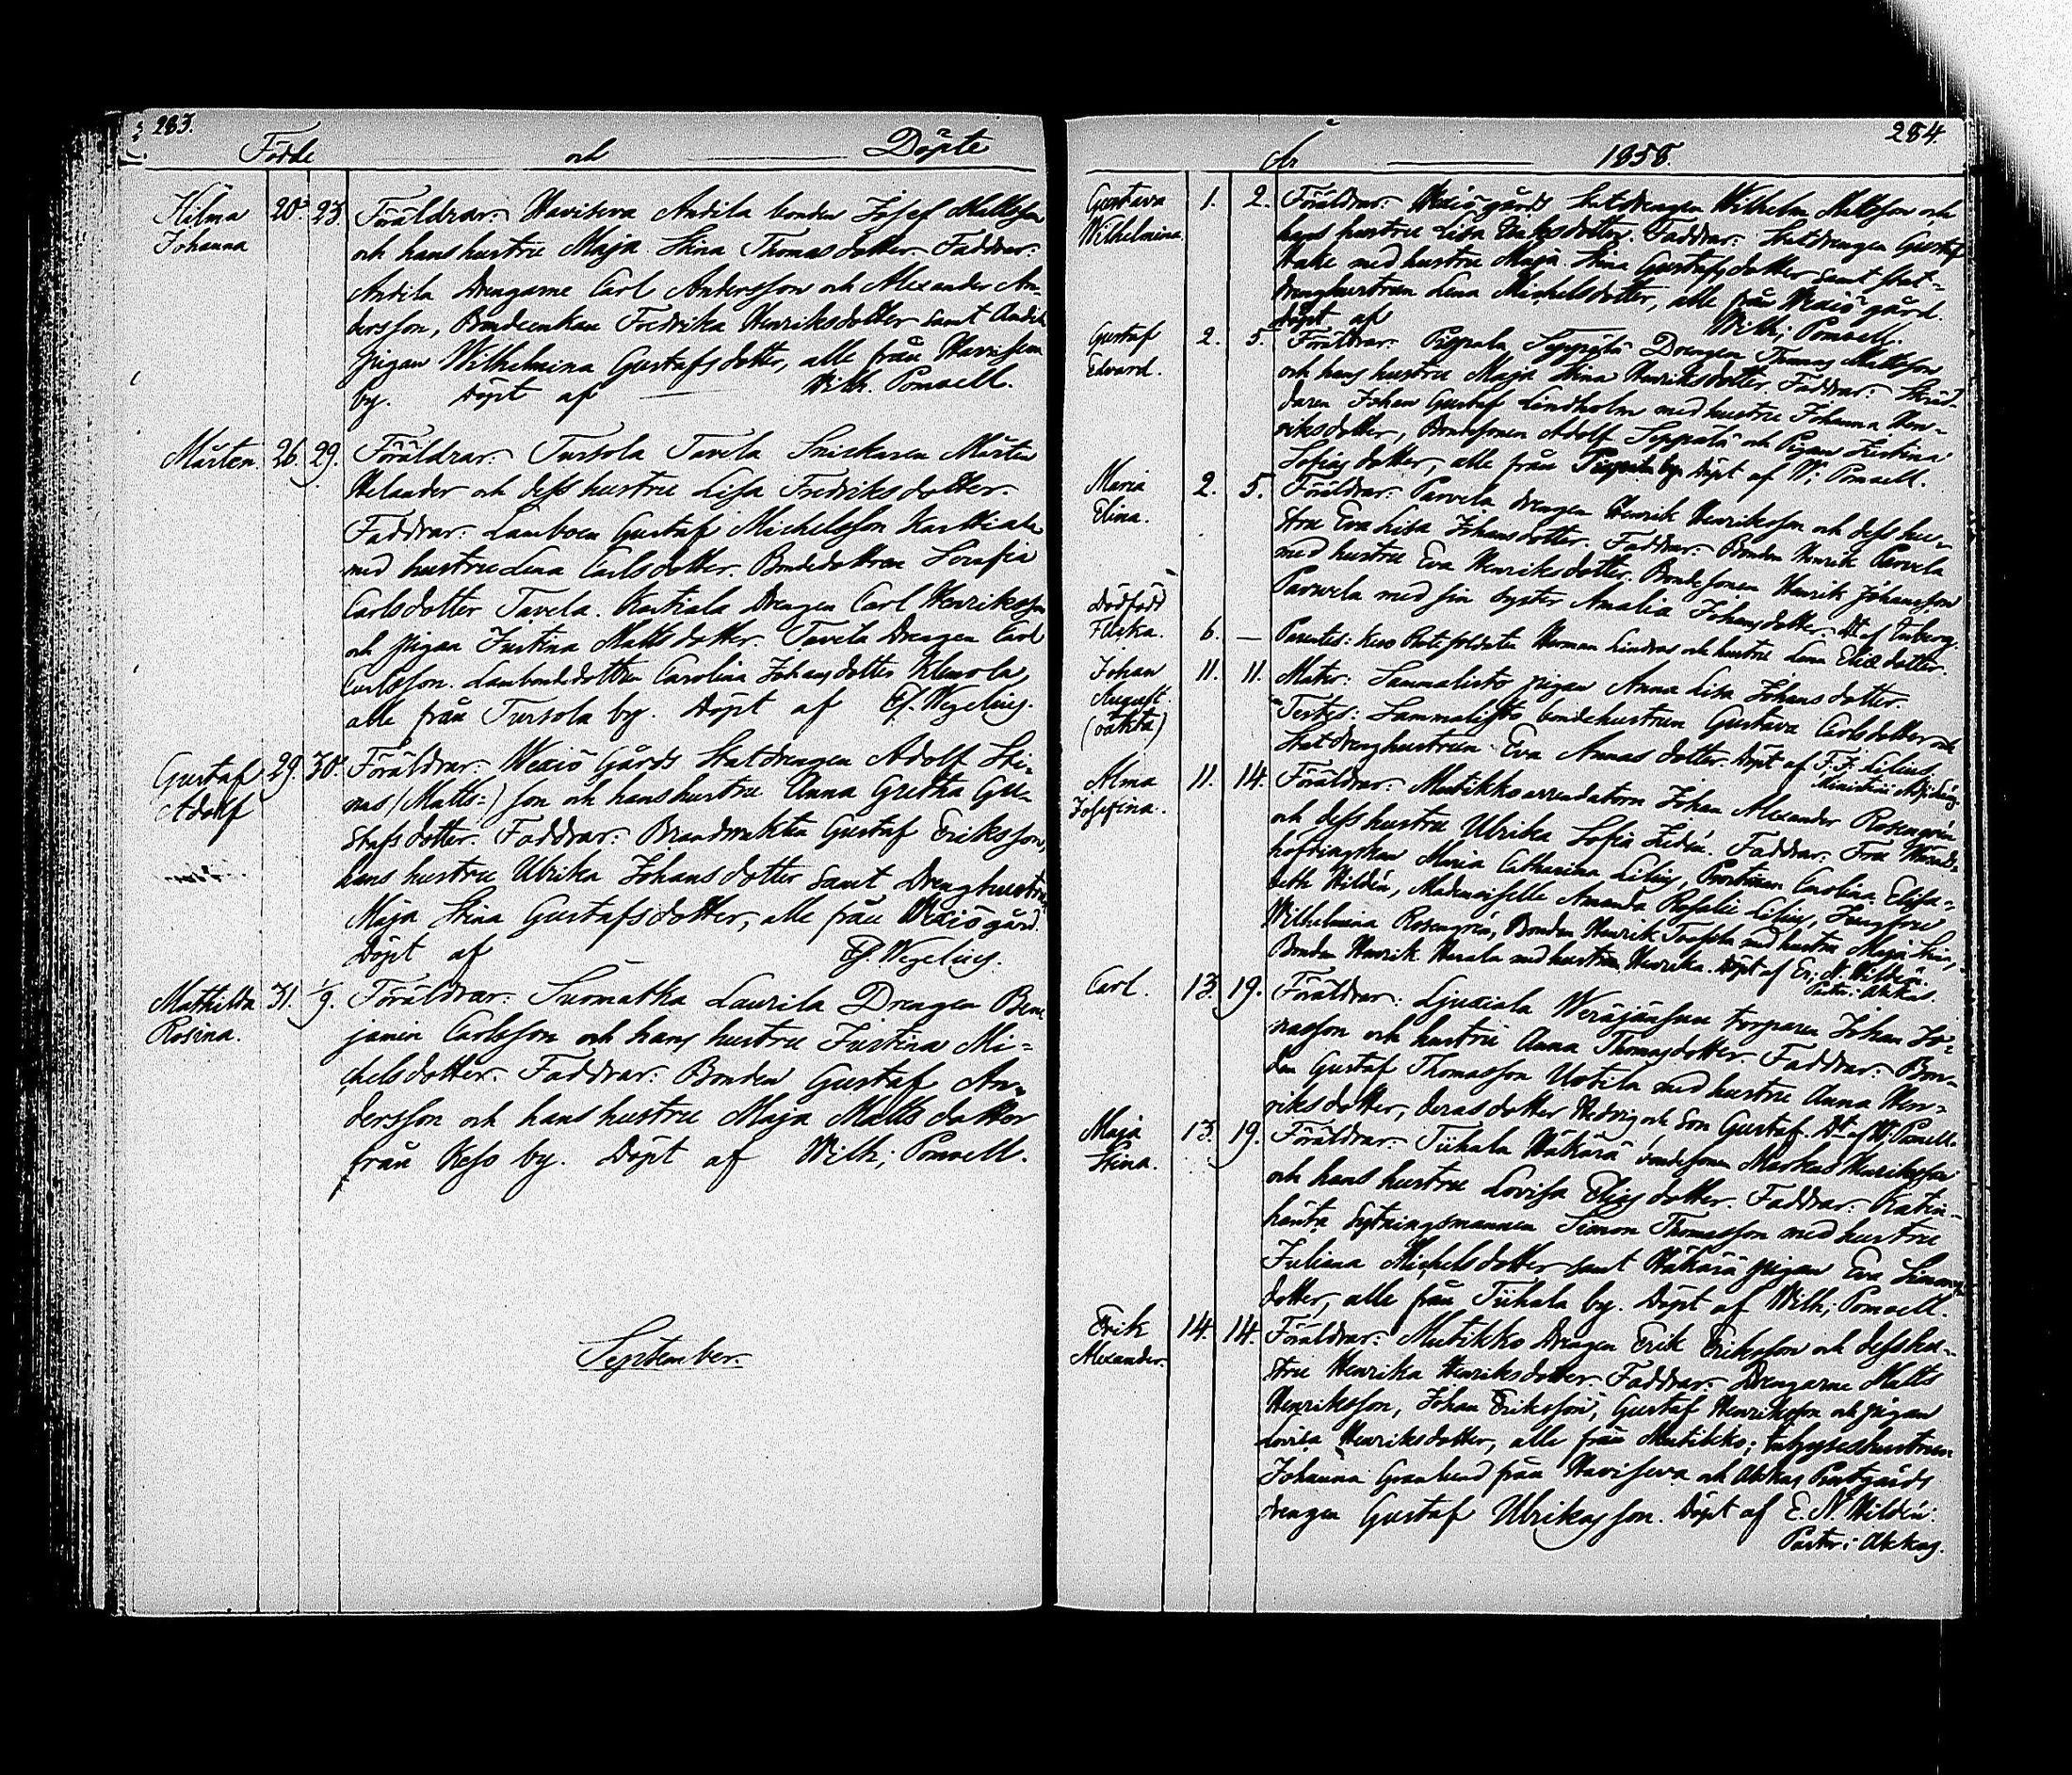 283.
Födde och Döpte
Hilma 20. 23. Föräldrar: Haviseva Andila bonden Josef Mattsson
Johanna och hans hustru Maja Stina Thomasdotter. Faddrar:
Andila Drengarne Carl Andersson och Alexander An-
dersson, Bondeenkan Fredrika Henriksdotter samt Andila
pigan Wilhelmina Gustafsdotter, alle från Haviseva
by. Döpt af Wilh. Ponsell.
Mårten. 26. 29. Föräldrar: Tursola Tavela Snickaren Mårten
Helander och dess hustru Lisa Fredriksdotter.
Faddrar: Lamboen Gustaf Michelsson Karttiala
med hustru Lena Carlsdotter. Bondedottren Serafia
Carlsdotter Tavela. Kartiala Drengen Carl Henriksson
och pigan Justina Mattsdotter. Tavela Drengen Carl
Carlsson. Lambondedottren Carolina Johansdotter Klemola,
alle från Tursola by. Döpt af Ef. Wegelius.
Gustaf 29. 30. Föräldrar: Wexiö Gårds Statdrengen Adolf Sti-
Adolf nus (Matts-) son och hans hustru Anna Gretha Gu-
stafsdotter. Faddrar: Brandvakten Gustaf Eriksson,
hans hustru Ulrika Johansdotter samt Drenghustrun
Maja Stina Gustafsdotter, alle från Wexiö gård.
Döpt af Ef. Wegelius.
Mathilda 31. 1/9. Föräldrar: Suomatka Laurila Drengen Ben-
Rosina. jamin Carlsson och hans hustru Justina Mi-
chelsdotter. Faddrar: Bonden Gustaf An-
dersson och hans hustru Maja Mattsdotter
från Keso by. Döpt af Wilh; Ponsell.
September.
284.
År 1858.
Gustava 1. 2. Föräldrar: Wexiö gårds Statdrengen Wilhelm Mattsson och
Wilhelmina. hans hustru Lisa Eriksdotter. Faddrar: Statdrengen Gustaf
Stake med hustru Maja Stina Gustafsdotter samt Stat-
drenghustrun Lena Michelsdotter, alle från Wexiö gård.
Döpt af Wilh; Ponsell.
Gustaf 2. 5. Föräldrar: Pippola Seppälä Drengen Thomas Mattsson
Edvard. och hans hustru Maja Stina Henriksdotter. Faddrar: Skräd-
daren Johan Gustaf Lindholm med hustru Johanna Hen-
riksdotter, Bondesonen Adolf Seppälä och Pigan Justina
Sofiasdotter, alle från by. Döpt af W. Ponsell.
Maria 2. 5. Föräldrar: Parvela drengen Henrik Henriksson och dess hu-
Elina. stru Eva Lisa Johansdotter. Faddrar: Bonden Henrik Parvela
med hustru Eva Henriksdotter. Bondesonen Henrik Johansson
Parvela med sin syster Amalia Johansdotter. Dt af
Dödfödd
Flicka. 6. — Parentes: Keso Rote soldaten Herman Lindros och hustru Lena Eliædotter.
Johan 11. 11. Mater: Sammalisto pigan Anna Lisa Johansdotter.
August. Testes: Sammalisto bondehustrun Gustava Carlsdotter och
(oäkta) Statdrenghustrun Eva Annasdotter. Döpt af F. F. Lilius,
Ministerii Adjunct.
Alma 11. 14. Föräldrar: Mutikko arrendatorn Johan Alexander Rosengrén
Josefina. och dess hustru Ulrika Sofia Lidén. Faddrar: Fru Härads-
höfdingskan Maria Catharina Lilius, Carolina Elisa-
beth Hildén, Mademoiselle Amanda Rosalie Lilius, Jungfru
Wilhelmina Rosengrén, Bonden Henrik med hustru Maja Stina,
Bonden Henrik Herala med hustrun Henrika. Döpt af Er; N. Hildén.
Pastor i Akkas.
Carl. 13. 19. Föräldrar: Ljuxiala Weräjänsuu torparen Johan Jo-
nasson och hustru Anna Thomasdotter. Faddrar: Bon-
den Gustaf Thomasson Uotila med hustru Anna Hen-
riksdotter, deras dotter Hedvig och Son Gustaf. Dt af W. Ponsell.
Maja 13. 19. Föräldrar: Tiihala Häkärä bondesonen Markus Henriksson
Stina. och hans hustru Lovisa Eliasdotter. Faddrar: Katin-
hänta Sytningsmannen Simon Thomasson med hustru
Juliana Michelsdotter samt Häkärä pigan Eva Simons-
dotter, alle från Tiihala by. Döpt af Wilh; Ponsell.
Erik 14. 14. Föräldrar: Mutikko Drengen Erik Eriksson och dess hu-
Alexander. stru Henrika Henriksdotter. Faddrar: Drengarne Matts
Henriksson, Johan Eriksson, Gustaf Henriksson och pigan
Lovisa Henriksdotter, alle från Mutikko; Inhyseshustrun
Johanna Granlund från Haviseva och Akkas Prestgårds
drengen Gustaf Ulrikasson. Döpt af E. N. Hildén.
Pastor i Akkas.